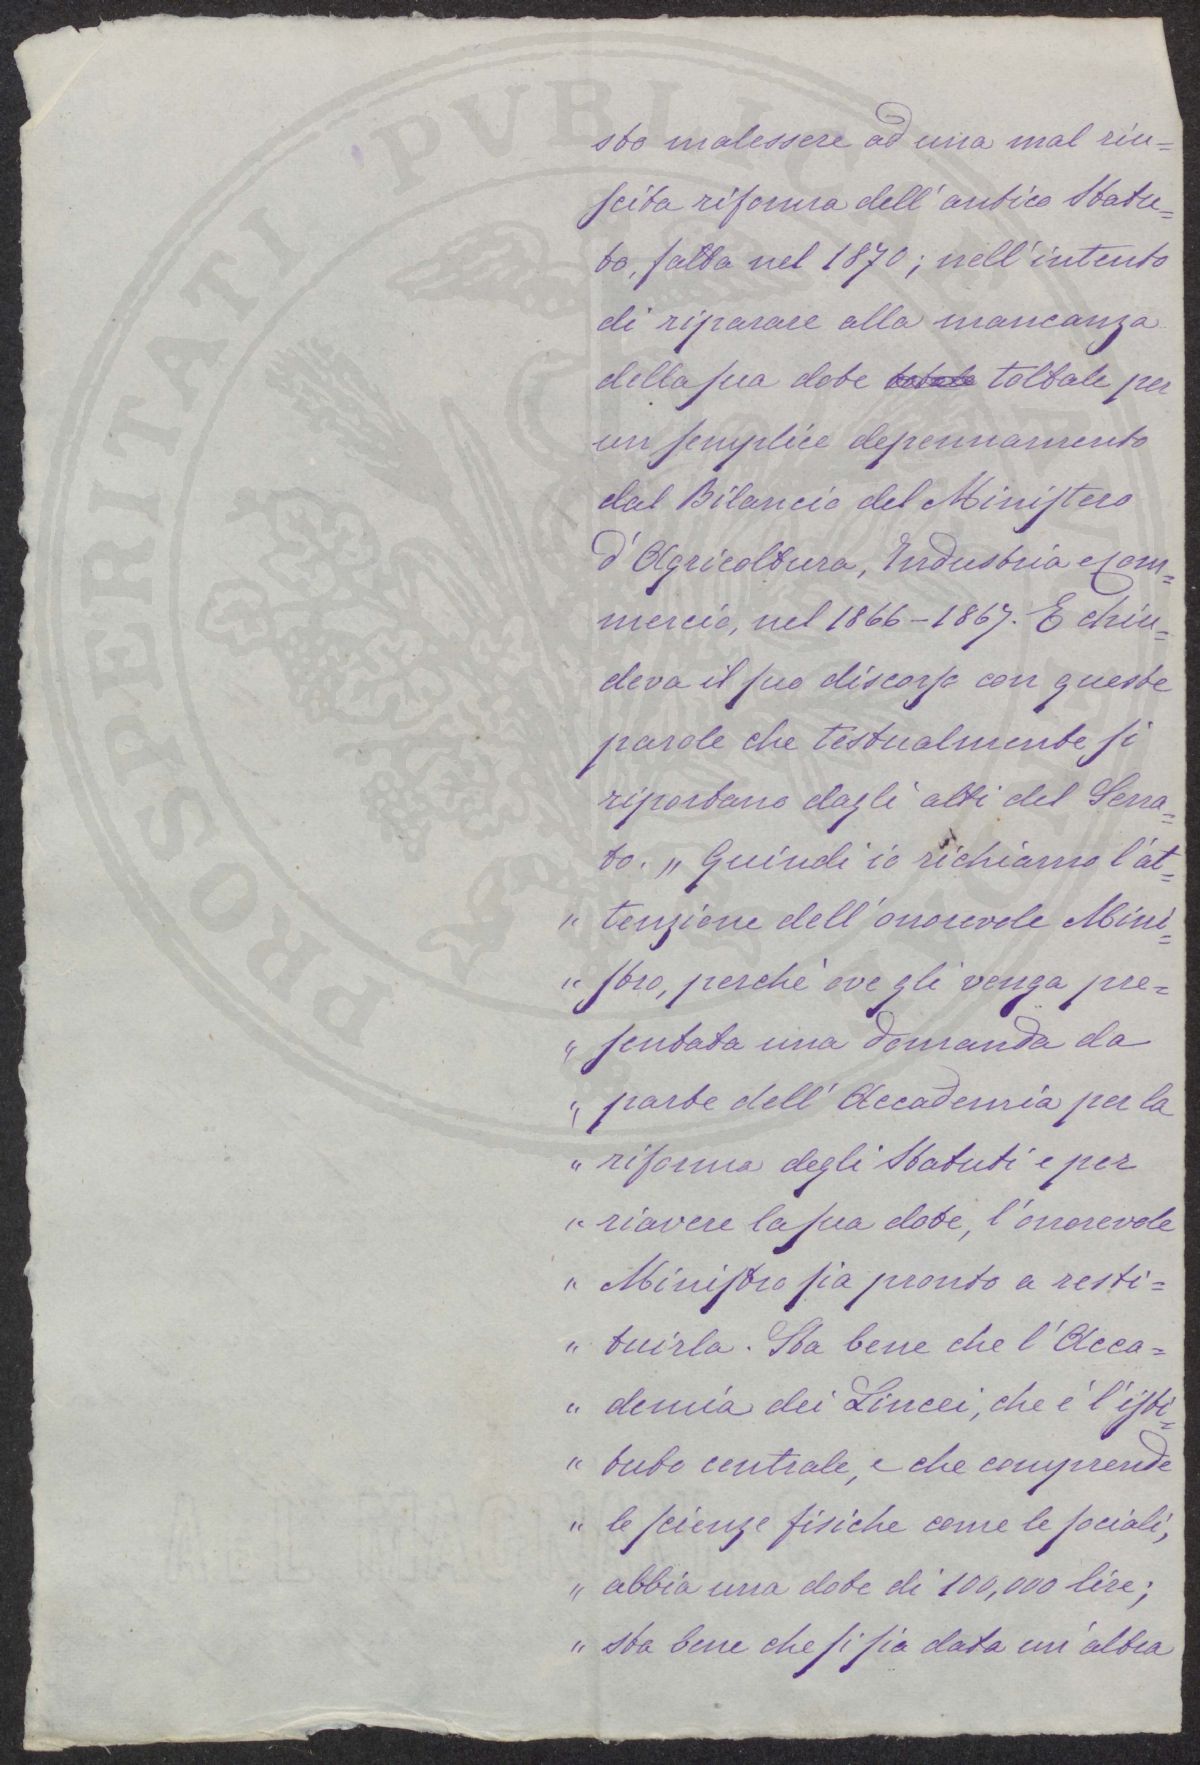 PROSPERITATI PVBLIC
sto malessere ad una mal riu=
scita riforma dell'antico Statu=
to, fatta nel 1870; nell'intento
di riparare alla mancanza
della sua dote toltale per
un semplice depennamento
dal Bilancio del Ministero
d'Agricoltura, Industria e Com=
mercio, nel 1866-1867. E chiu=
deva il suo discorso con queste
parole che testualmente si
riportano dagli atti del Sena=
to. „ Quindi io richiamo l'at=
" tenzione dell'onorevole Mini=
" stro, perchè ove gli venga pre=
" sentata una domanda da
" parte dell'Accademia per la
" riforma degli Statuti e per
" riavere la sua dote, l'onorevole
" Ministro sia pronto a resti=
" tuirla. Sta bene che l'Acca=
" demia dei Lincei, che è l'isti=
" tuto centrale, e che comprende
" le scienze fisiche come le sociali,
" abbia una dote di 100,000 lire;
" sta bene che si sia data un'altra